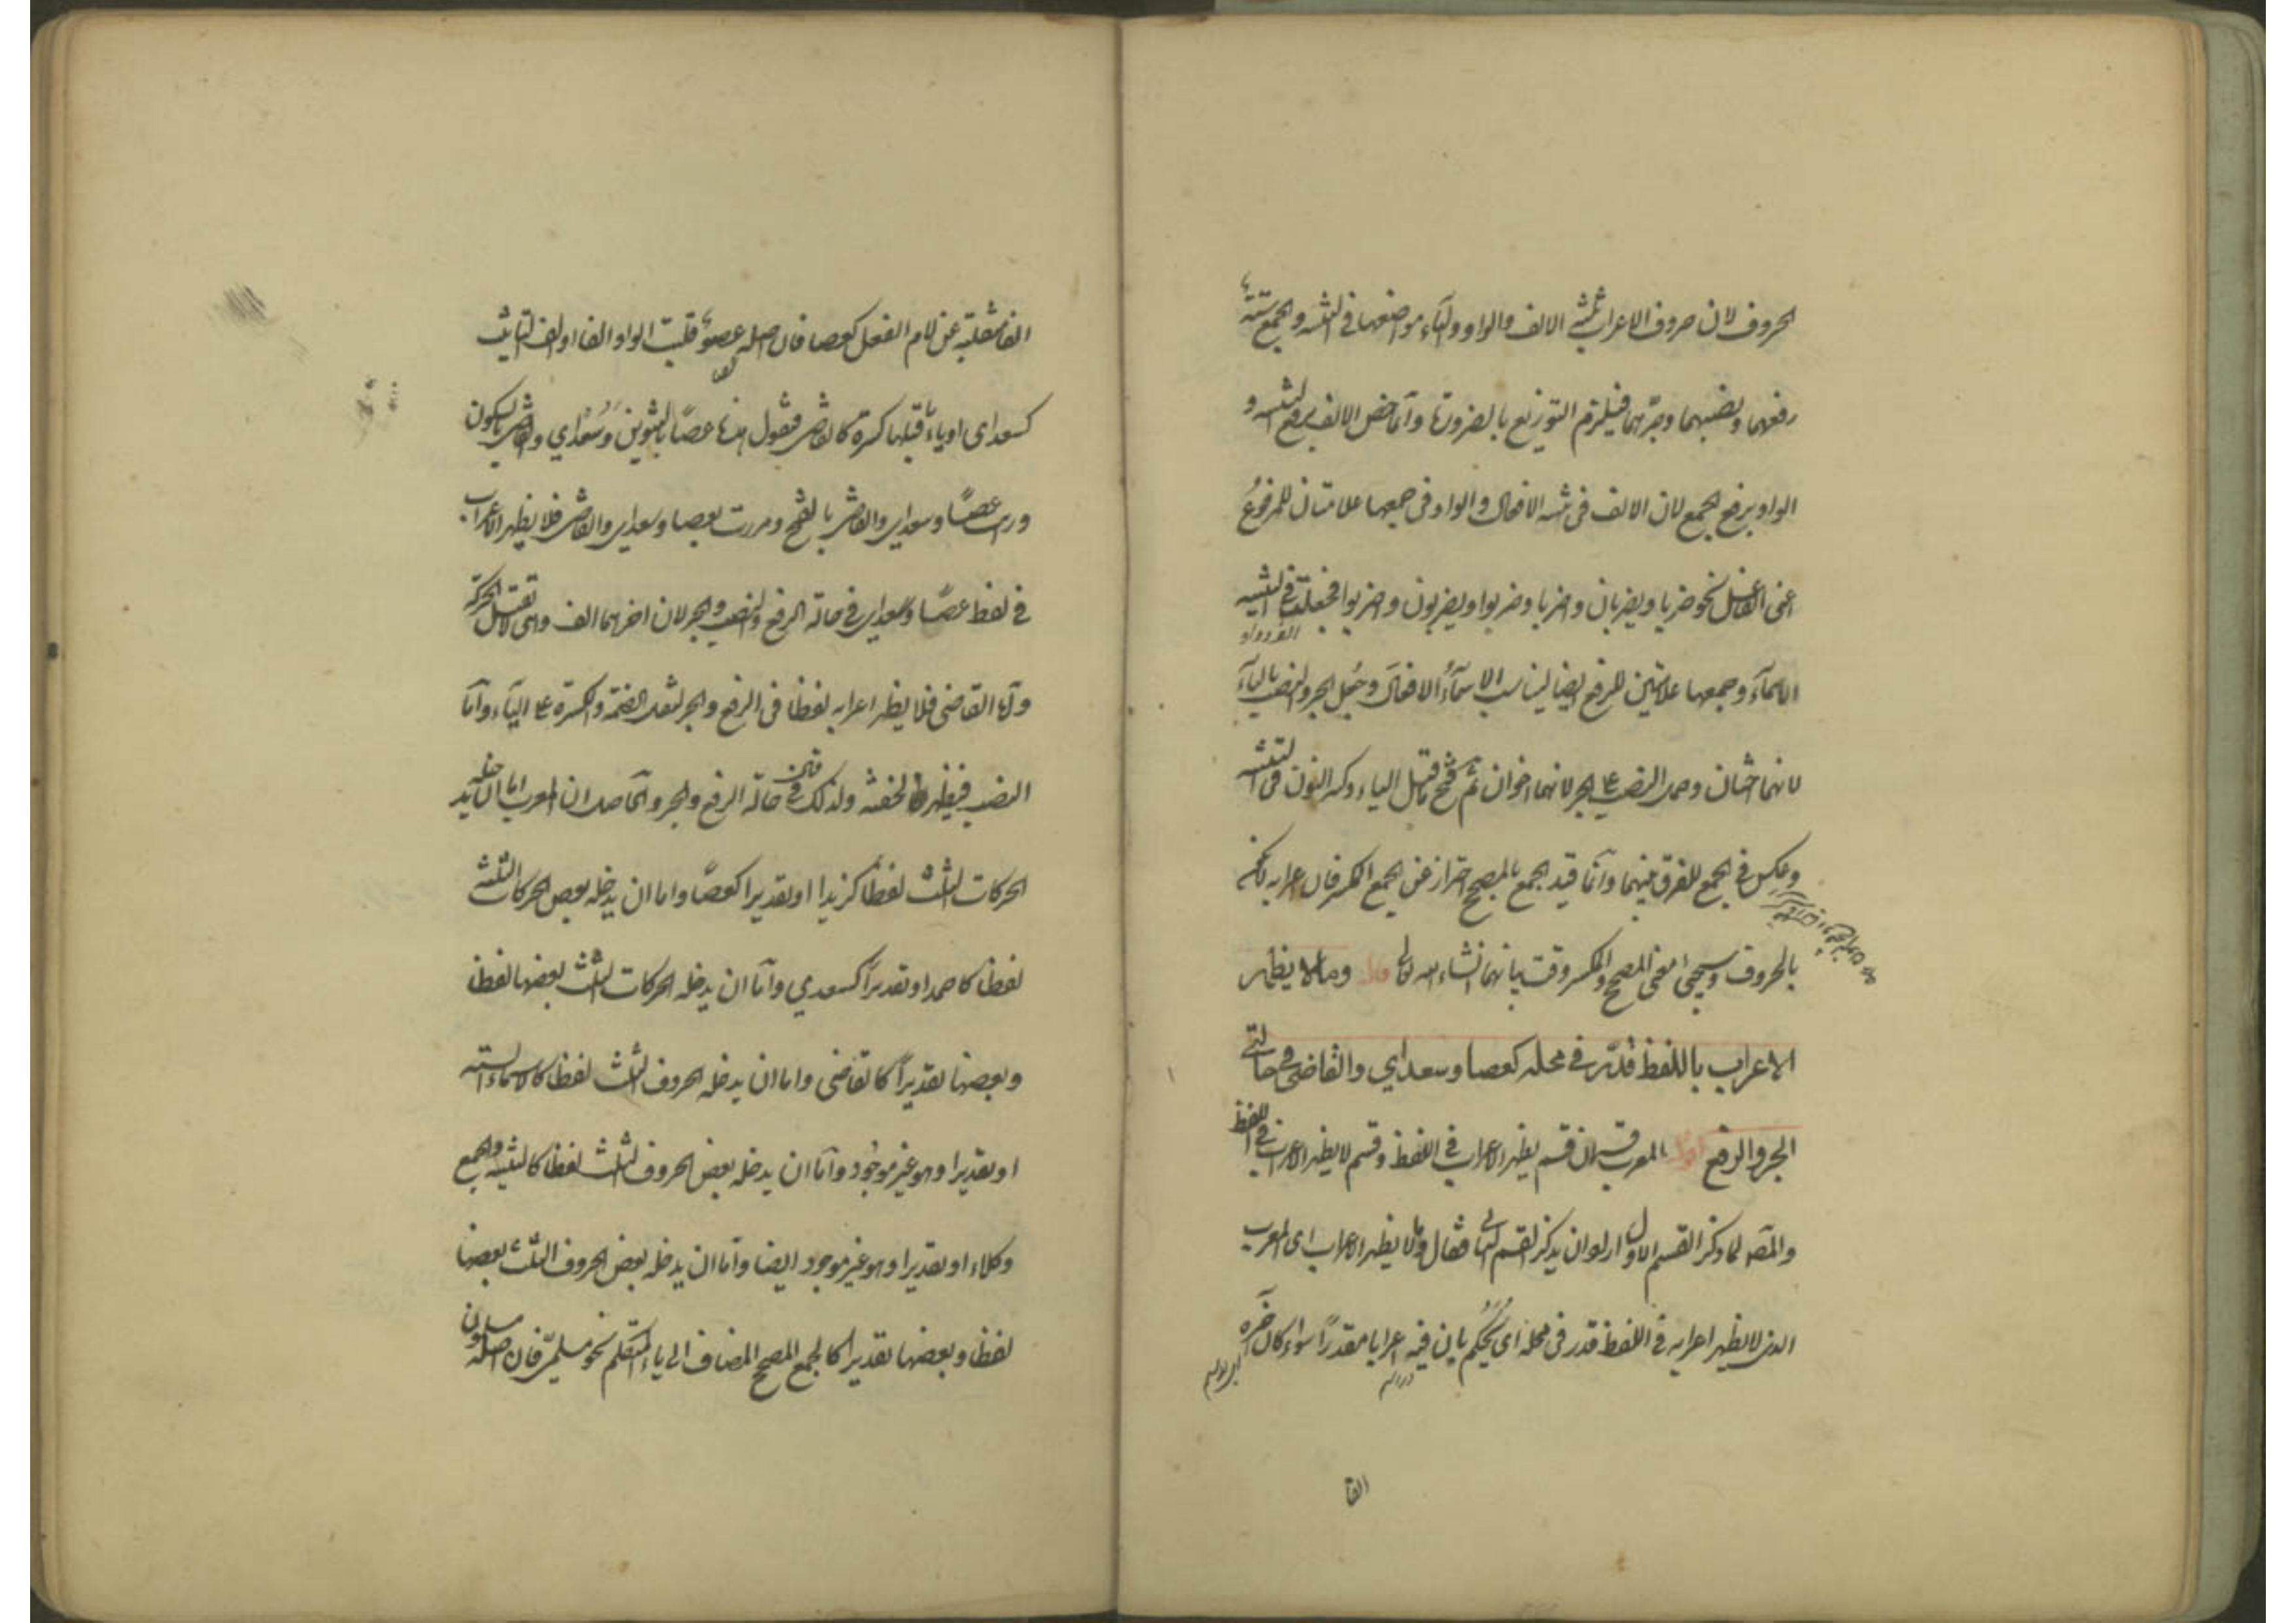 الحروف لان حروف الاعراب ثلثة الالف والواو والياء ومواضعها في التثنية والجمع ستة
رفعهما ونصبهما وجرهما فيلزم التوزيع بالضرورة وانما خص الالف برفع التثنية و
الواو برفع الجمع لان الالف في تثنية الافعال والواو في جمعها علامتان للمرفوع
اعنى الفاعل نحو ضربا ويضربان واضربا وضربوا ويضربون واضربوا فجعلتا في التثنية
الاسماء وجمعها علامتين للرفع ايضا ليناسب الاسماء الافعال وجعل الجر والنصب بالياء
لانهما وحمل النصب على الجر لانهما اخوان ثم فتح ما قبل الياء وكسر النون في التثنية
وعكس في الجمع للفرق بينهما وانما قيد الجمع بالمصحح احترازا عن الجمع المكسر فان اعرابه
بالحروف وسيجئ معنى المصحح والمكسر وقت بيانهما انشاء الله تعالى قال وما لا يظهر
الاعراب باللفظ قدر في محله كعصا وسعدى والقاضى في حالتى
الجر والرفع اقول المعرب قسمان قسم يظهر الاعراب في اللفظ وقسم لا يظهر الاعراب في اللفظ
والمصـ لما ذكر القسم الاول اراد ان يذكر القسم الثانى فقال وما لا يظهر الاعراب اى المعرب
الذى لا يظهر اعرابه في اللفظ قدر في محله اى يحكم بان فيه اعرابا مقدرا سواء كان آخره
الفا
الفا منقلبة عن لام الفعل كعصا فان اصله عصو قلبت الواو الفا او الف التانيث
كسعدى او ياء قبلها كسرة كالقاضى فتقول هذا عصا بالتنوين وسعدى والقاضى بالسكون
ورايت عصا وسعدى والقاضى بالفتح ومررت بعصا وسعدى والقاضى فلا يظهر الاعراب
في لفظ عصا وسعدى في حالة الرفع والنصب والجر لان آخرهما الف وهى لا تقبل الحركة
واما القاضى فلا يظهر اعرابه لفظا في الرفع والجر لثقل الضمة والكسرة على الياء واما
النصب فيظهر لخفته ولذلك قال في حالة الرفع والجر والحاصل ان المعرب اما ان يدخله
الحركات الثلث لفظا كزيد او تقديرا كعصا واما ان يدخله بعض الحركات الثلثة
لفظا كاحمد او تقديرا كسعدى واما ان يدخله الحركات الثلث بعضها لفظا
وبعضها تقديرا كالقاضى واما ان يدخله الحروف الثلث لفظا كالاسماء الستة
او تقديرا وهو غير موجود واما ان يدخله بعض الحروف الثلث لفظا كالتثنية والجمع
وكلاء او تقديرا وهو غير موجود ايضا واما ان يدخله بعض الحروف الثلث بعضها
لفظا وبعضها تقديرا كالجمع المصحح المضاف الى ياء المتكلم نحو مسلمى فان اصله مسلمون